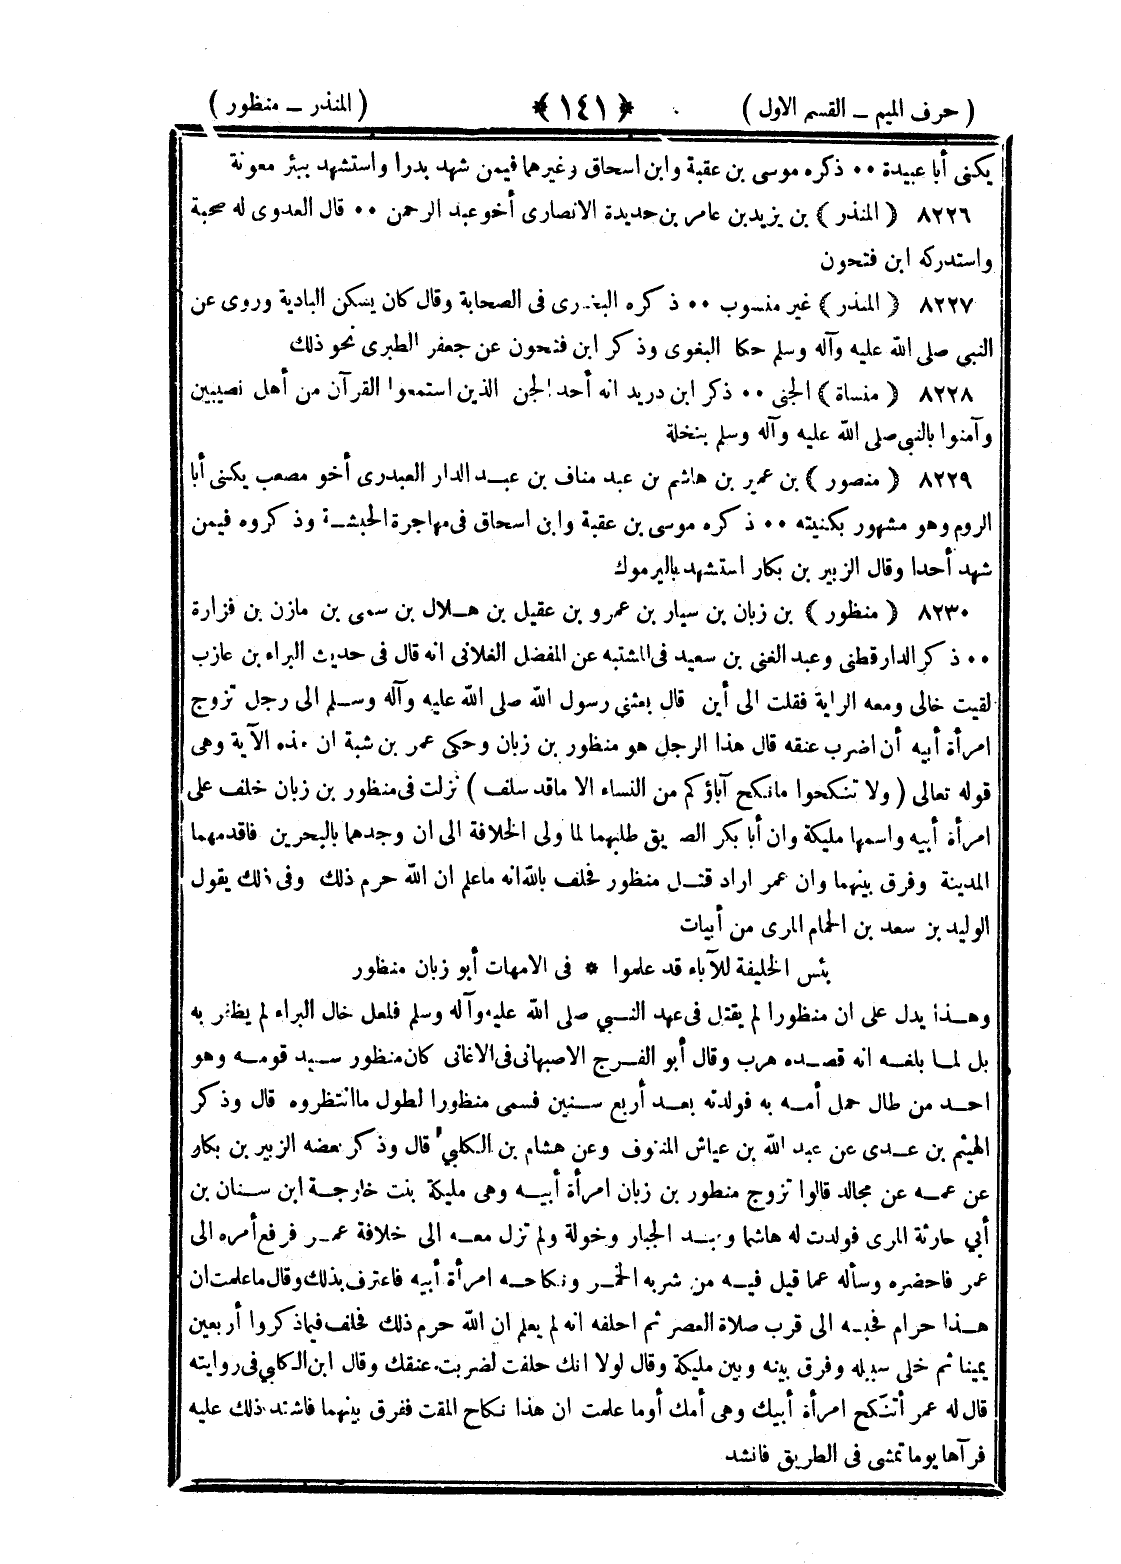 ( حرف الميم ــ القسم الاول ) ﴿ ١٤١ ﴾ ( المنذر ــ منظور )
يكنى أبا عبيدة ٠٠ ذكره موسى بن عقبة وابن اسحاق وغيرهما فيمن شهد بدرا واستشهد ببئر معونة
٨٢٢٦ ( المنذر ) بن يزيد بن عامر بن حديدة الانصارى أخو عبد الرحمن ٠٠ قال العدوى له صحبة
واستدركه ابن فتحون
٨٢٢٧ ( المنذر ) غير منسوب ٠٠ ذكره البغوى فى الصحابة وقال كان يسكن البادية وروى عن
النبي صلى الله عليه وآله وسلم حكا البغوى وذكر ابن فتحون عن جعفر الطبرى نحو ذلك
٨٢٢٨ ( منساة ) الجنى ٠٠ ذكر ابن دريد انه أحد الجن الذين استمعوا القرآن من أهل نصيبين
وآمنوا بالنبي صلى الله عليه وآله وسلم بنخلة
٨٢٢٩ ( منصور ) بن عمير بن هاشم بن عبد مناف بن عبد الدار العبدرى أخو مصعب يكنى أبا
الروم وهو مشهور بكنيته ٠٠ ذكره موسى بن عقبة وابن اسحاق فى مهاجرة الحبشة وذكروه فيمن
شهد أحدا وقال الزبير بن بكار استشهد باليرموك
٨٢٣٠ ( منظور ) بن زبان بن سيار بن عمرو بن عقيل بن هلال بن سمى بن مازن بن فزارة
٠٠ ذكر الدارقطنى وعبد الغنى بن سعيد فى المشتبه عن المفضل الغلانى انه قال فى حديث البراء بن عازب
لقيت خالى ومعه الراية فقلت الى أين قال بعثنى رسول الله صلى الله عليه وآله وسلم الى رجل تزوج
امرأة أبيه أن اضرب عنقه قال هذا الرجل هو منظور بن زبان وحكى عمر بن شبة ان هذه الآية وهى
قوله تعالى ( ولا تنكحوا مانكح آباؤكم من النساء الا ماقد سلف ) نزلت فى منظور بن زبان خلف على
امرأة أبيه واسمها مليكة وان أبا بكر الصديق طلبهما لما ولى الخلافة الى ان وجدهما بالبحرين فاقدمهما
المدينة وفرق بينهما وان عمر اراد قتل منظور فحلف بالله انه ماعلم ان الله حرم ذلك وفى ذلك يقول
الوليد بن سعد بن الحمام المرى من أبيات
بئس الخليفة للآباء قد علموا * فى الامهات أبو زبان منظور
وهذا يدل على ان منظورا لم يقتل فى عهد النبي صلى الله عليه وآله وسلم فلعل خال البراء لم يظفر به
بل لما بلغه انه قصده هرب وقال أبو الفرج الاصبهانى فى الاغانى كان منظور سيد قومه وهو
احد من طال حمل أمه به فولدته بعد أربع سنين فسمى منظورا لطول ماانتظروه قال وذكر
الهيثم بن عدى عن عبد الله بن عياش المنتوف وعن هشام بن الكلبي قال وذكر بعضه الزبير بن بكار
عن عمه عن مجالد قالوا تزوج منظور بن زبان امرأة أبيه وهى مليكة بنت خارجة ابن سنان بن
أبي حارثة المرى فولدت له هاشما وعبد الجبار وخولة ولم تزل معه الى خلافة عمر فرفع أمره الى
عمر فاحضره وسأله عما قيل فيه من شربه الخمر ونكاحه امرأة أبيه فاعترف بذلك وقال ماعلمت ان
هذا حرام فحبسه الى قرب صلاة العصر ثم احلفه انه لم يعلم ان الله حرم ذلك فحلف فيما ذكروا أربعين
يمينا ثم خلى سبيله وفرق بينه وبين مليكة وقال لولا انك حلفت لضربت عنقك وقال ابن الكلبي فى روايته
قال له عمر أتنكح امرأة أبيك وهى أمك أوما علمت ان هذا نكاح المقت ففرق بينهما فاشتد ذلك عليه
فرآها يوما تمشى فى الطريق فانشد